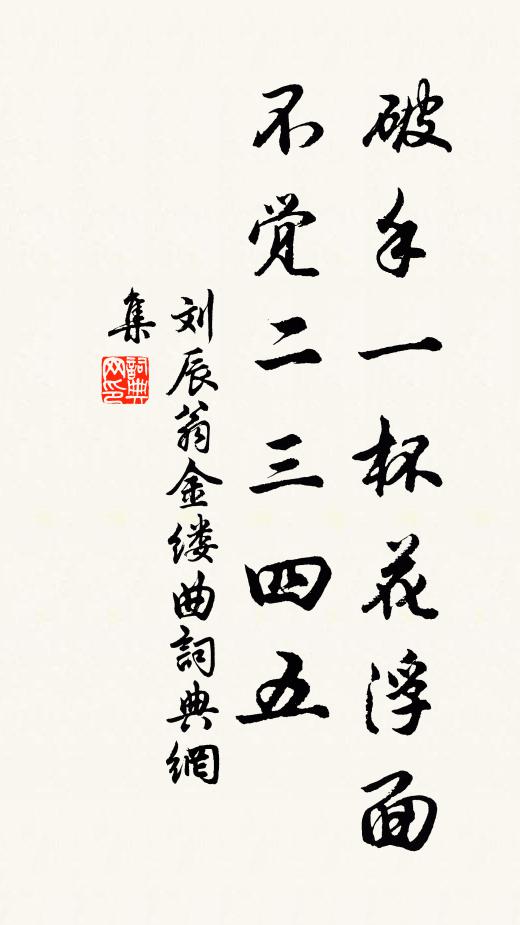 破手一杯花浮面
不觉二三四五
刘辰翁金缕曲詞典網
集
詞典网印